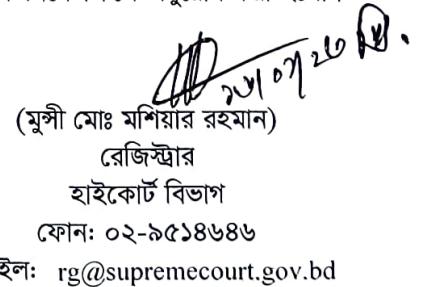 (মুন্সী মোঃ মশিয়ার রহমান)
রেজিস্ট্রার
হাইকোর্ট বিভাগ
ফোনঃ ০২-৯৫১৪৬৪৬
ইলঃ rg@supremecourt.gov.bd